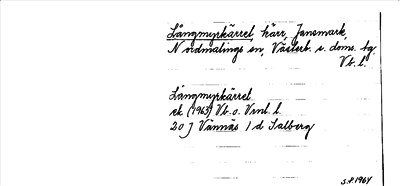 Långmyrkärret kärr, Jansmark,
Nordmalings sn, Västerb. s. doms. tg.
Vb. l.
Långmyrkärret
ek (1963) Vb. o. Vml. l.
20 J Vännäs 1 d Salberg
S.P. 1964